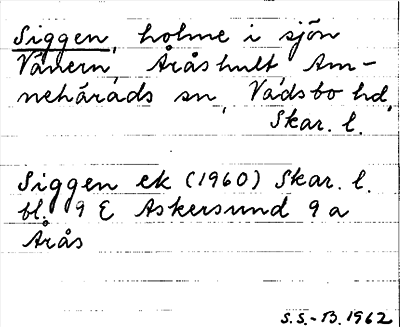 Siggen, holme i sjön
Vänern, Åråshult, Am-
nehärads sn, Vadsbo hd,
Skar. l.
Siggen ek (1960) Skar. l.
bl. 9 E Askersund 9 a
Årås
S.S.-B. 1962